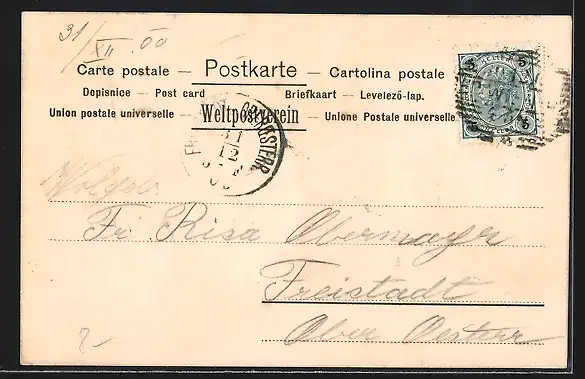 31/XII 00
Carte postale — Postkarte — Cartolina postale
Dopisnice — Post card Briefkaart — Levelező-lap.
Union postale universelle Weltpostverein — Unione Postale universelle
31
12
5 5
5 5
Fr. Risa Obermayer
Freistadt
Ober Oesterr